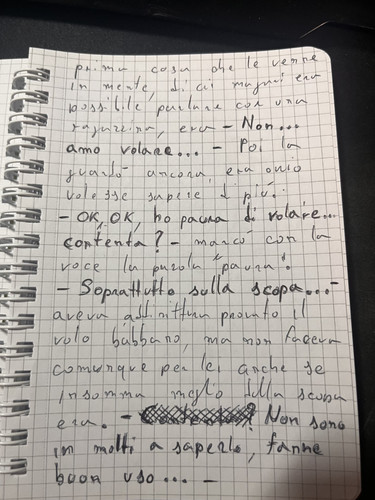 prima cosa che le venne
in mente, di cui magari era
possibile parlare con una
ragazzina, era - Non...
amo volare... - Poi la
guardò ancora, era ovvio
volesse sapere di più.
- OK, OK, ho paura di volare...
contenta? - marcò con la
voce la parola "paura".
- Soprattutto sulla scopa... -
aveva addirittura provato il
volo babbano, ma non faceva
comunque per lei anche se
insomma meglio della scopa
era. - Non sono
in molti a saperlo, fanne
buon uso... -